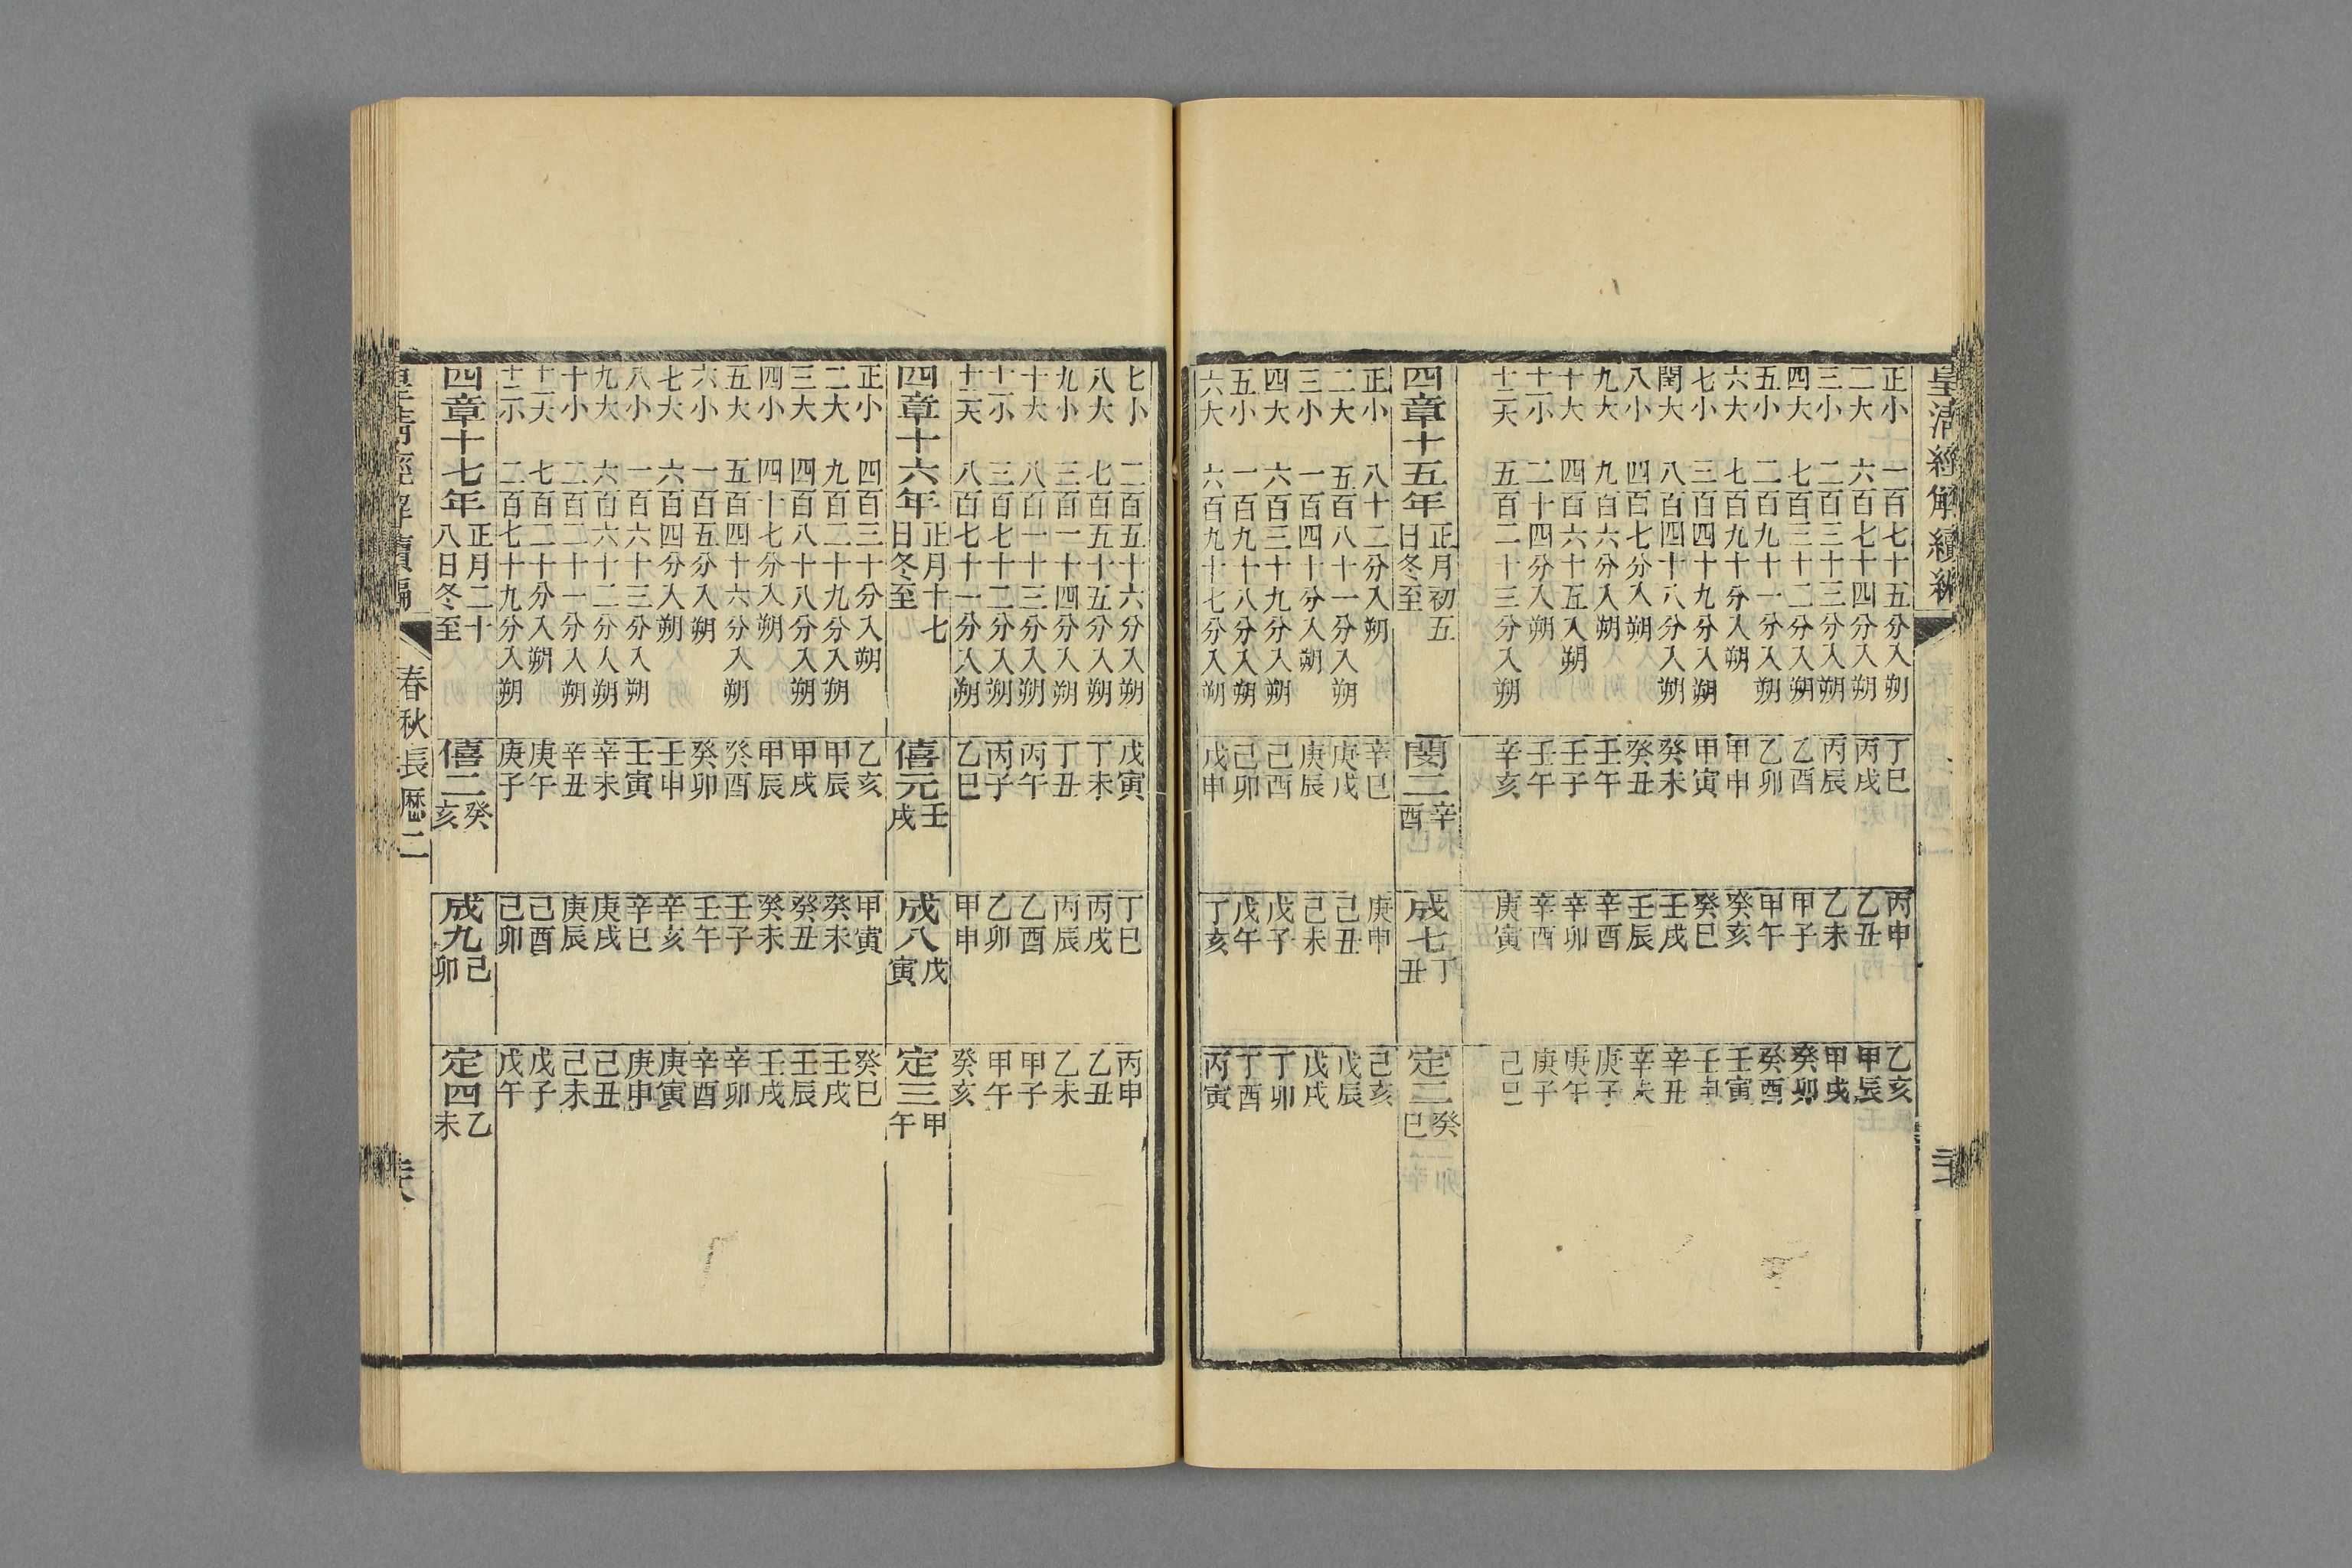 皇清經解續編
正小 一百七十五分入朔 丁巳 丙申 乙亥
二大 六百七十四分入朔 丙戌 乙丑 甲辰
三小 二百三十三分入朔 丙辰 乙未 甲戌
四大 七百三十二分入朔 乙酉 甲子 癸卯
五小 二百九十一分入朔 乙卯 甲午 癸酉
六大 七百九十分入朔 甲申 癸亥 壬寅
七小 三百四十九分入朔 甲寅 癸巳 壬申
閏大 八百四十八分入朔 癸未 壬戌 辛丑
八小 四百七分入朔 癸丑 壬辰 辛未
九大 九百六分入朔 壬午 辛酉 庚子
十大 四百六十五分入朔 壬子 辛卯 庚午
十一小 二十四分入朔 壬午 辛酉 庚子
十二大 五百二十三分入朔 辛亥 庚寅 己巳
四章十五年 正月初五日冬至 閔二 辛酉 成七 丁丑 定二 癸巳
正小 八十二分入朔 辛巳 庚申 己亥
二大 五百八十一分入朔 庚戌 己丑 戊辰
三小 一百四十分入朔 庚辰 己未 戊戌
四大 六百三十九分入朔 己酉 戊子 丁卯
五小 一百九十八分入朔 己卯 戊午 丁酉
六大 六百九十七分入朔 戊申 丁亥 丙寅
七小 二百五十六分入朔 戊寅 丁巳 丙申
八大 七百五十五分入朔 丁未 丙戌 乙丑
九小 三百一十四分入朔 丁丑 丙辰 乙未
十大 八百一十三分入朔 丙午 乙酉 甲子
十一小 三百七十二分入朔 丙子 乙卯 甲午
十二大 八百七十一分入朔 乙巳 甲申 癸亥
四章十六年 正月十七日冬至 僖元 壬戌 成八 戊寅 定三 甲午
正小 四百三十分入朔 乙亥 甲寅 癸巳
二大 九百二十九分入朔 甲辰 癸未 壬戌
三大 四百八十八分入朔 甲戌 癸丑 壬辰
四小 四十七分入朔 甲辰 癸未 壬戌
五大 五百四十六分入朔 癸酉 壬子 辛卯
六小 一百五分入朔 癸卯 壬午 辛酉
七大 六百四分入朔 壬申 辛亥 庚寅
八小 一百六十三分入朔 壬寅 辛巳 庚申
九大 六百六十二分入朔 辛未 庚戌 己丑
十小 二百二十一分入朔 辛丑 庚辰 己未
十一大 七百二十分入朔 庚午 己酉 戊子
十二小 二百七十九分入朔 庚子 己卯 戊午
四章十七年 正月二十八日冬至 僖二 癸亥 成九 己卯 定四 乙未
皇清經解續編 春秋長歷二